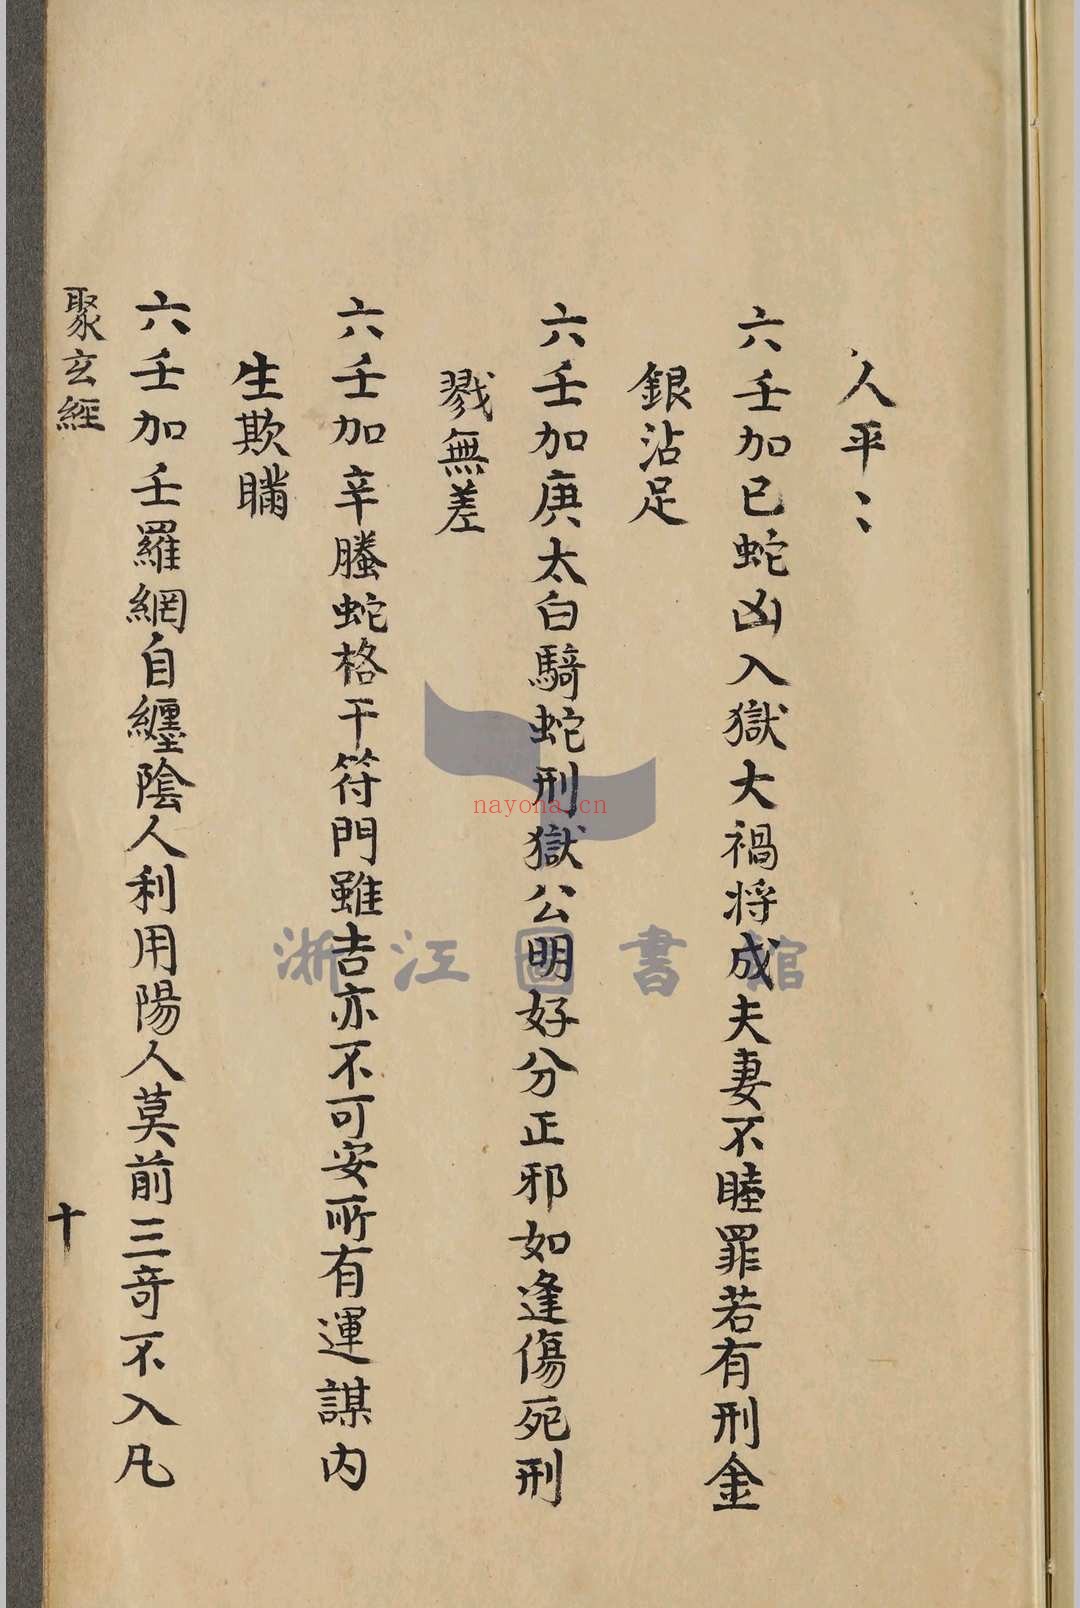 人平〻
六壬加已蛇凶入獄大禍将成夫妻不睦罪若有刑金
銀沾足
六壬加庚太白騎蛇刑獄公明好分正邪如逢傷死刑
戮無差
六壬加辛螣蛇格干符門雖吉亦不可安所有運謀内
生欺瞞
六壬加壬羅網自纏陰人利用陽人莫前三奇不入凡
聚玄經
十
浙江圖書館
nayona.cn